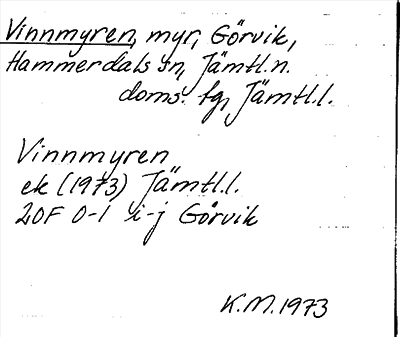 Vinnmyren, myr, Görvik,
Hammerdals sn, Jämtl.n.
doms. tg, Jämtl.l.
Vinnmyren
ek (1973) Jämtl.l.
20F 0-1 i-j Görvik
K.M. 1973